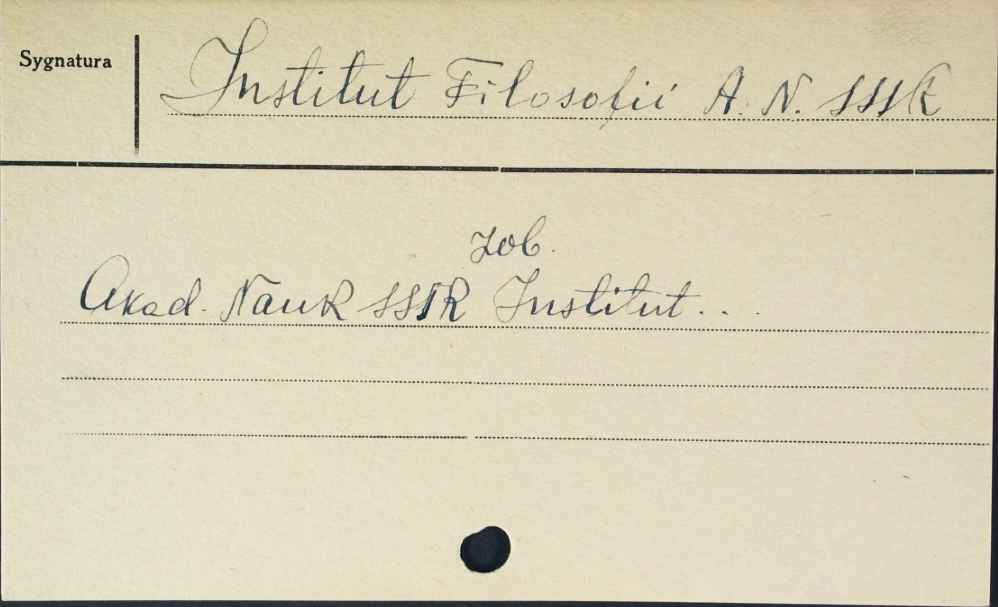 Sygnatura
Institut Filosofii A. N. SSSR
zob.
Akad. Nauk SSSR Institut...